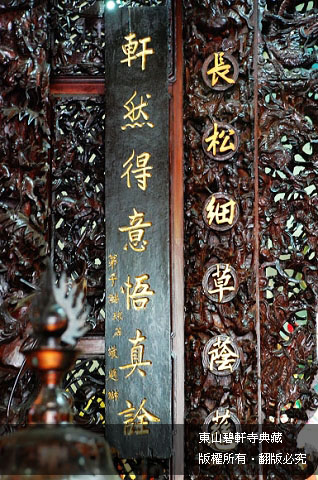 長松細草蔭
軒然得意悟真詮
東山碧軒寺典藏
版權所有・翻版必究